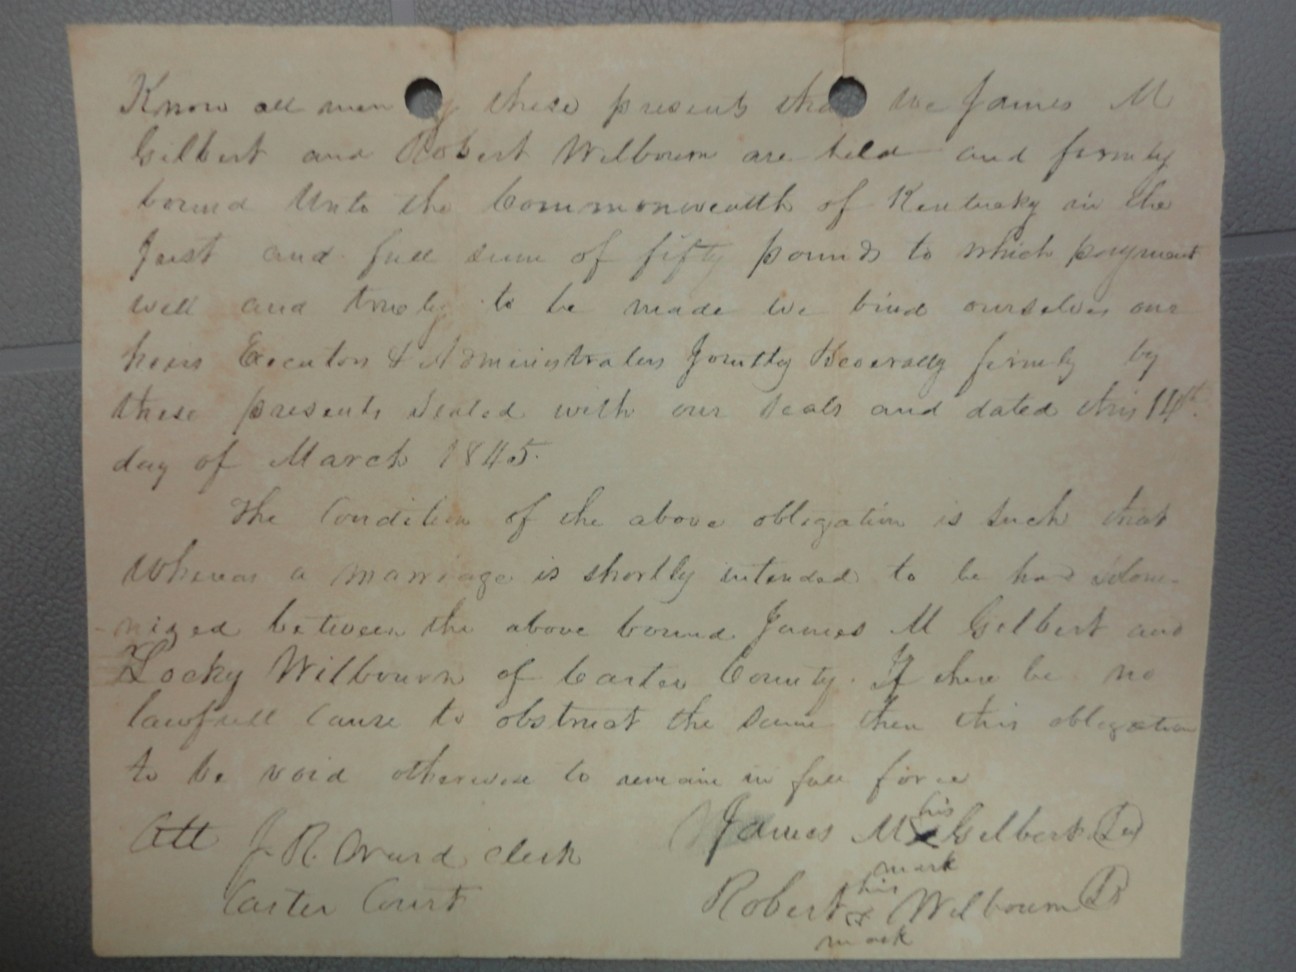 Know all men by these presents that we James M
Gilbert and Robert Wilbourn are held and firmly
bound unto the Commonwealth of Kentucky in the
Just and full sum of fifty pounds to which payment
well and truely to be made we bind ourselves our
heirs Executors & Administrators Jointly & Severally firmly by
these presents Sealed with our seals and dated this 14th
day of March 1845.
The Condition of the above obligation is such that
Whereas a marriage is shortly intended to be had &
nized between the above bound James M Gilbert and
Locky Wilbourn of Carter County. If there be no
lawfull Cause to obstruct the same then this obligation
to be void otherwise to remain in full force
Att J. R. Ward clerk
Carter Court
James M his x mark Gilbert
Robert his x mark Wilbourn